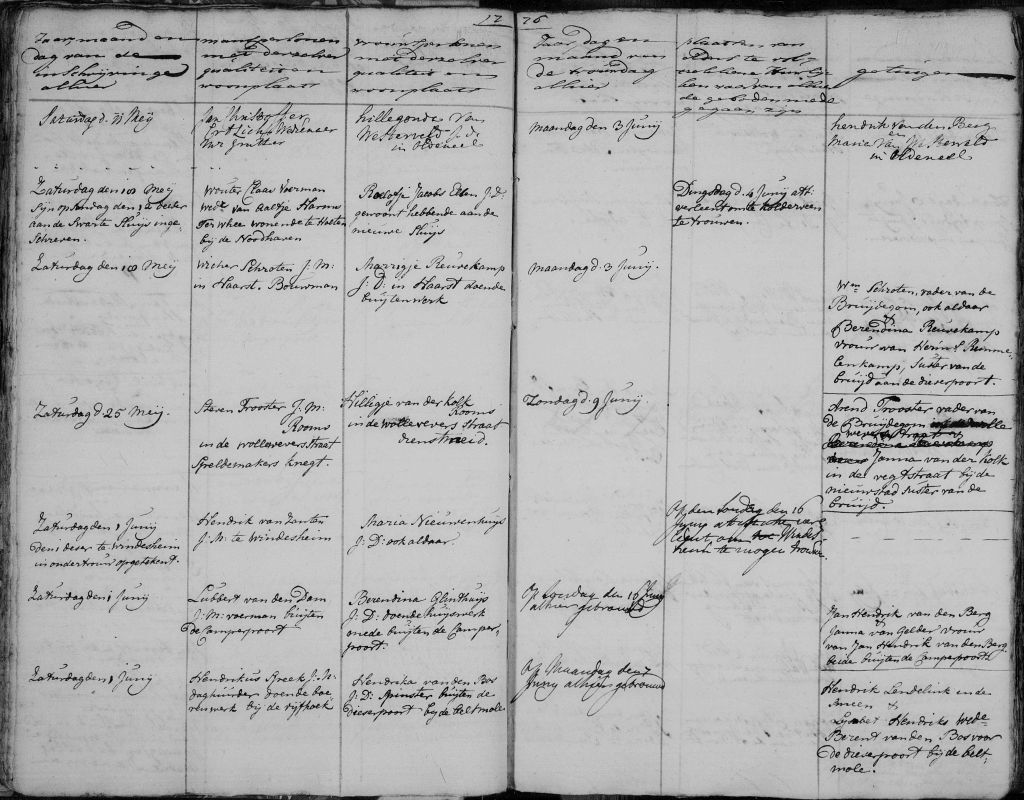 17 76
Jaar, maand en
dag van de
inschrijvinge
alhier
manspersonen
met derzelver
qualiteit en
woonplaats
vrouwspersonen
met derzelver
qualiteit en
woonplaats
Jaar, dag en
maand van
de trouwdag
alhier
plaatsen van
elders te vol-
getuigen
Saturdag d. Meij
hillegonde Van
Westerveld J: d:
in Oldeneel
maandag den 3 Junij
hendrik van den Berg
en
Maria Van Westerveld
in Oldeneel
Zaturdag den 18 Meij
sijn op Sondag den
aan de Swarte Sluijs inge-
schreven.
Wouter Claas Voerman
wedr. van Aaltje Harms
Ter Whee wonende te Holten
bij de Noodhaven
Roelofje Jacobs Elden J.D.
gewoont hebbende aan de
nieuwe Sluijs
Dingsdag d. 4 Junij att:
verleent om te Kolderveen
te trouwen.
Zaturdag den 18 Meij
Wicher Schroten J: M:
in Haarst. Bouwman
Marrigje Reuvekamp
J: D: in Haarst doende
buijtenwerk
maandag d. 3 Junij.
Wm Schroten, vader van de
Bruijdegom, ook aldaar
&
Berendina Reuvekamp
vrouw van Herm: Remme-
lenkamp, suster van de
bruijd aan de dieserpoort.
Zaturdag d 25 Meij.
Steven Trooster J: M:
Rooms
in de wollewevers straat
Speldemakers knegt.
Hillegje van der Kolk
Rooms
in de wollewevers straat
dienstmeid.
Zondag d. 9 Junij
Arend Trooster vader van
de Bruijdegom
Janna van der Kolk
in de vegtstraat bij de
nieuwstad suster van de
bruijd.
Zaturdag den 1 Junij
den te windesheim
in ondertrouw opgetekent.
Hendrik van Zanten
J: M: te Windesheim
Maria Nieuwenhuijs
J: D: ook aldaar.
Op den Sondag den 16
Juny attestatie ver-
leent om te Windes-
heim te mogen trouwen
Zaturdag den 1 Junij
Lubbert van den Dam
J: M: voerman buijten
de Camperpoort
Berendina Glinthuijs
J: D: doende huijswerk
mede buijten de Camper-
poort.
Op Sondag den 16 Juny
alhier getrouwd
Jan Hendrik van den Berg
&
Janna van Gelder vrouw
van Jan Hendrik van den Berg
beide buijten de Camperpoort
Zaturdag den 1 Junij
Hendrikus Kreek J: M:
daghuurder doende boe-
renwerk bij de vijfhoek
Hendrika van den Bos
J: D: spinster buijten de
dieserpoort bij de beltmole
Op Maandag den
Juny alhier getrouwd
Hendrik Lendelink in de
&
Lijsbet Hendriks Wede
Berent van den Bos voor
de dieserpoort bij de belt-
mole.